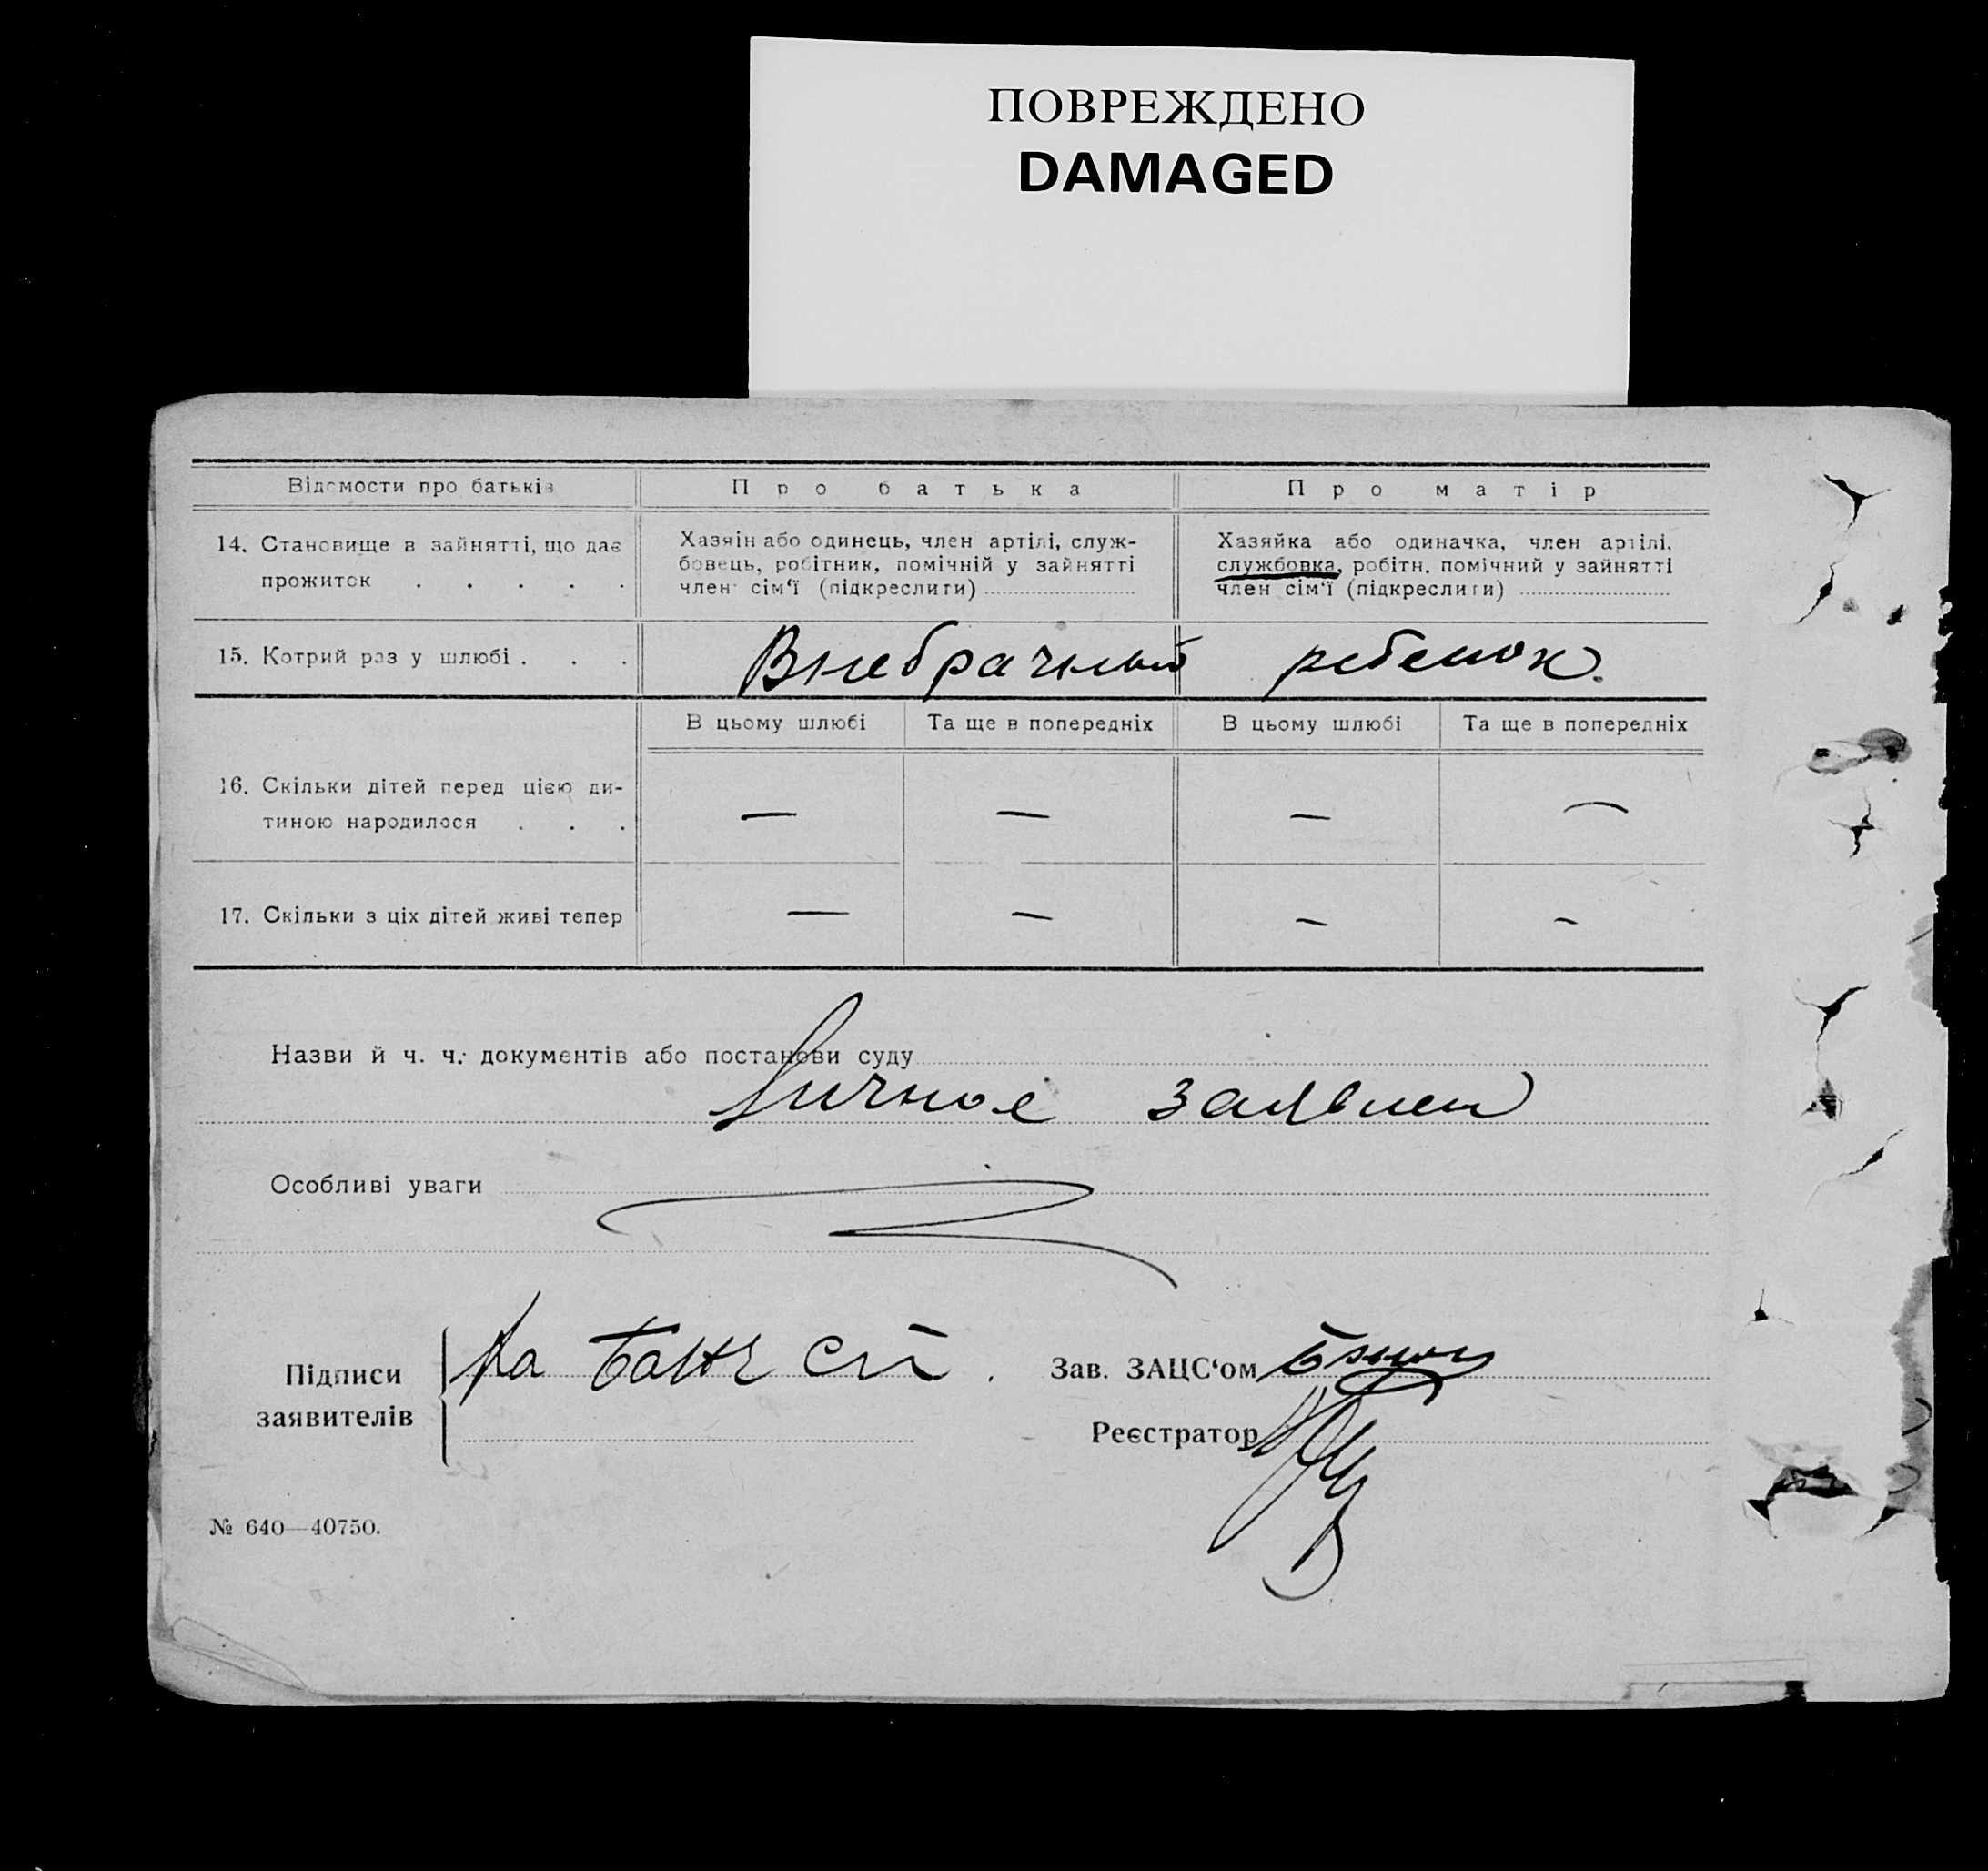 ПОВРЕЖДЕНО
DAMAGED
Відомости про батьків
Про батька
Про матір
14. Становище в зайнятті, що дає
прожиток . . . . .
Хазяін або одинець, член артілі, служ-
бовець, робітник, помічній у зайнятті
член сім‘ї (підкреслити)
Хазяйка або одиначка, член артілі,
службовка, робітн. помічний у зайнятті
член сім‘ї (підкреслити)
15. Котрий раз у шлюбі . . .
Внебрачный ребенок.
В цьому шлюбі
Та ще в попередніх
В цьому шлюбі
Та ще в попередніх
16. Скільки дітей перед цією ди-
тиною народилося . . .
— — — —
17. Скільки з ціх дітей живі тепер
— — — —
Назви й ч. ч. документів або постанови суду
Личное заявлен
Особливі уваги
Підписи
заявителів
Зав. ЗАЦС‘ом
Реєстратор
№ 640—40750.